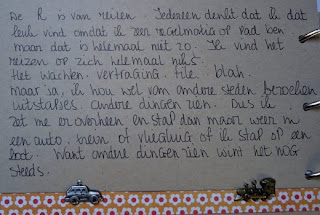 De R is van reizen. Iedereen denkt dat ik dat
leuk vind omdat ik zeer regelmatig op pad ben
maar dat is helemaal niet zo. Ik vind het
reizen op zich helemaal niks.
Het wachten. vertraging. file. blah.
maar ja, ik hou wel van andere steden bezoeken
uitstapjes. andere dingen zien. Dus ik
zet me er overheen en stap dan maar weer in
een auto, trein of vliegtuig of ik stap op een
boot. Want andere dingen zien wint het NOG
steeds.